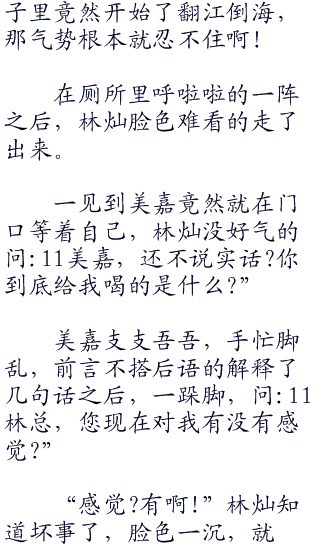 子里竟然开始了翻江倒海，
那气势根本就忍不住啊！
在厕所里呼啦啦的一阵
之后，林灿脸色难看的走了
出来。
一见到美嘉竟然就在门
口等着自己，林灿没好气的
问：11美嘉，还不说实话？你
到底给我喝的是什么？”
美嘉支支吾吾，手忙脚
乱，前言不搭后语的解释了
几句话之后，一跺脚，问：11
林总，您现在对我有没有感
觉？”
“感觉？有啊！”林灿知
道坏事了，脸色一沉，就